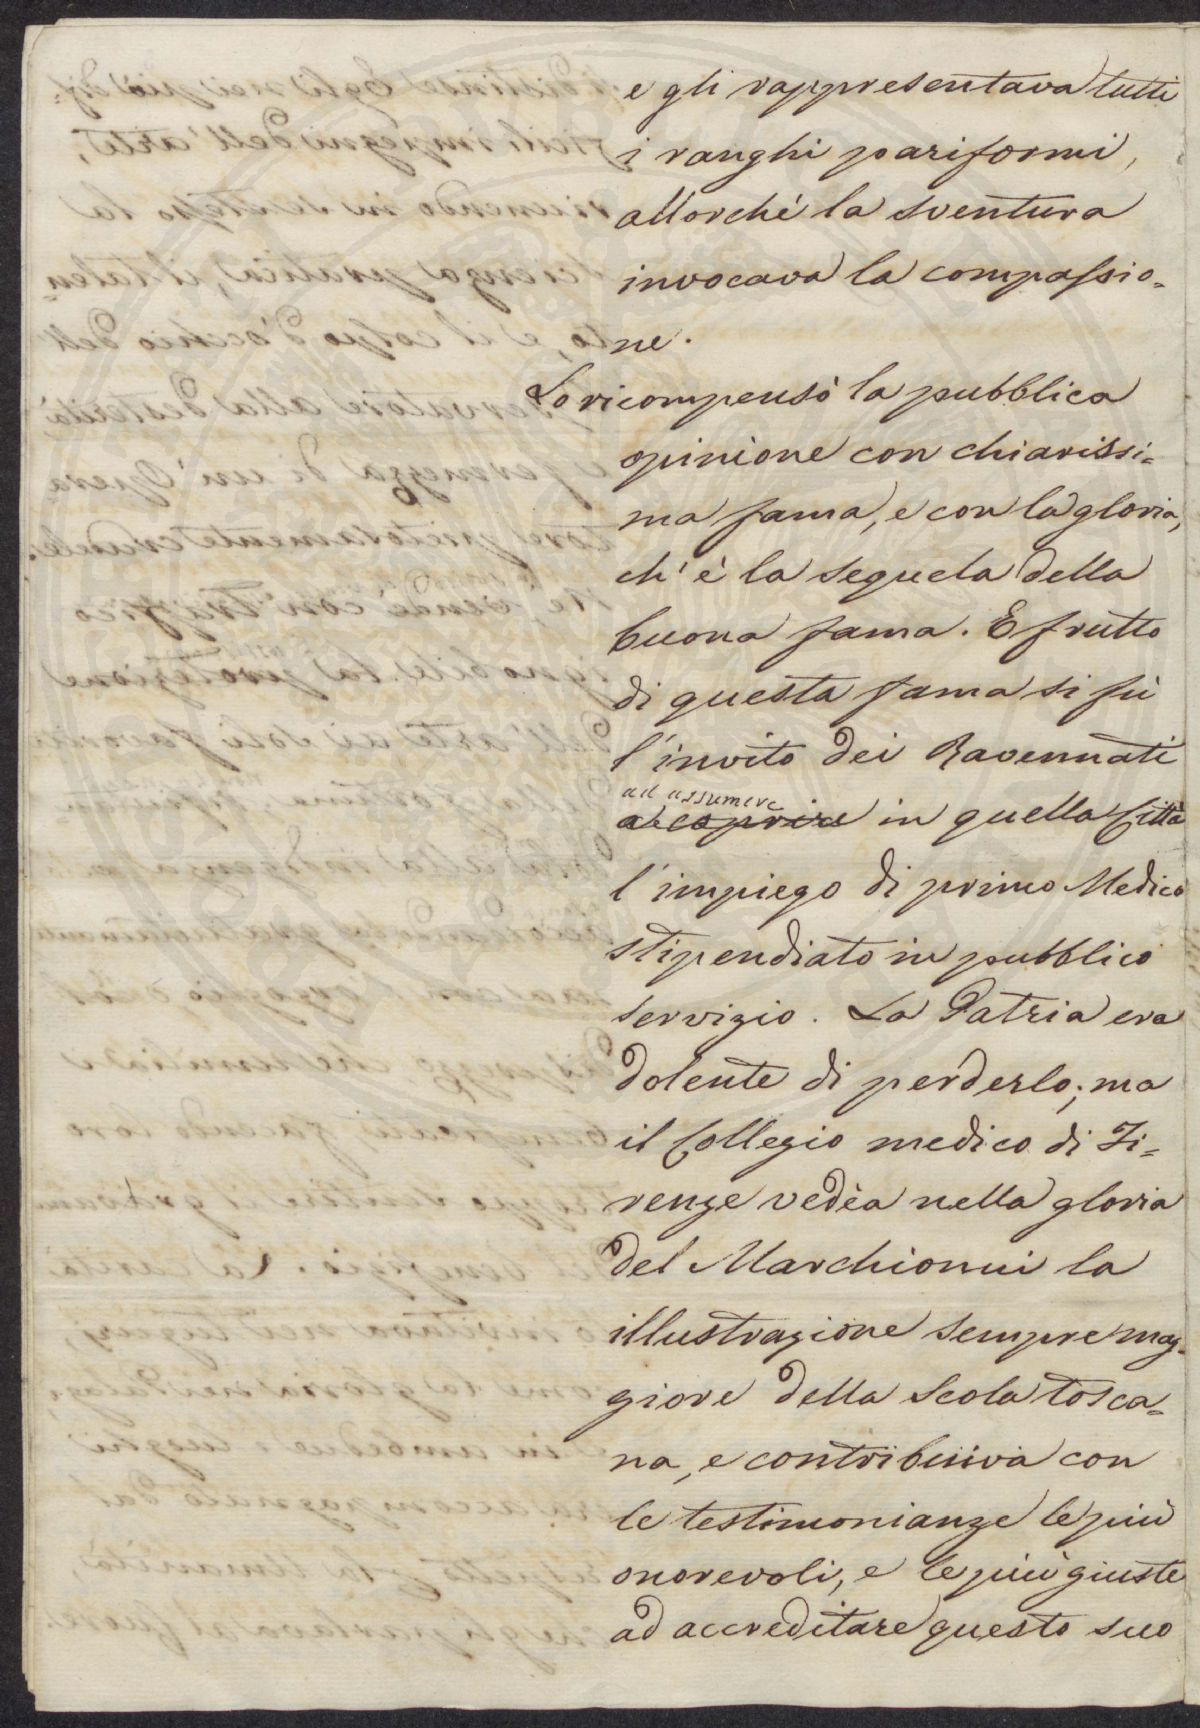 e gli rappresentava tutti
i ranghi pariformi,
allorchè la sventura
invocava la compassio=
ne.
Lo ricompensò la pubblica
opinione con chiarissi=
ma fama, e con la gloria,
ch'è la sequela della
buona fama. E frutto
di questa fama si fù
l'invito dei Ravennati
ad assumere
a coprire in quella Città
l'impiego di primo Medico
stipendiato in pubblico
servizio. La Patria era
dolente di perderlo; ma
il Collegio medico di Fi=
renze vedèa nella gloria
del Marchionni la
illustrazione sempre mag=
giore della Scola tosca=
na, e contribuiva con
le testimonianze le più
onorevoli, e le più giuste
ad accreditare questo suo